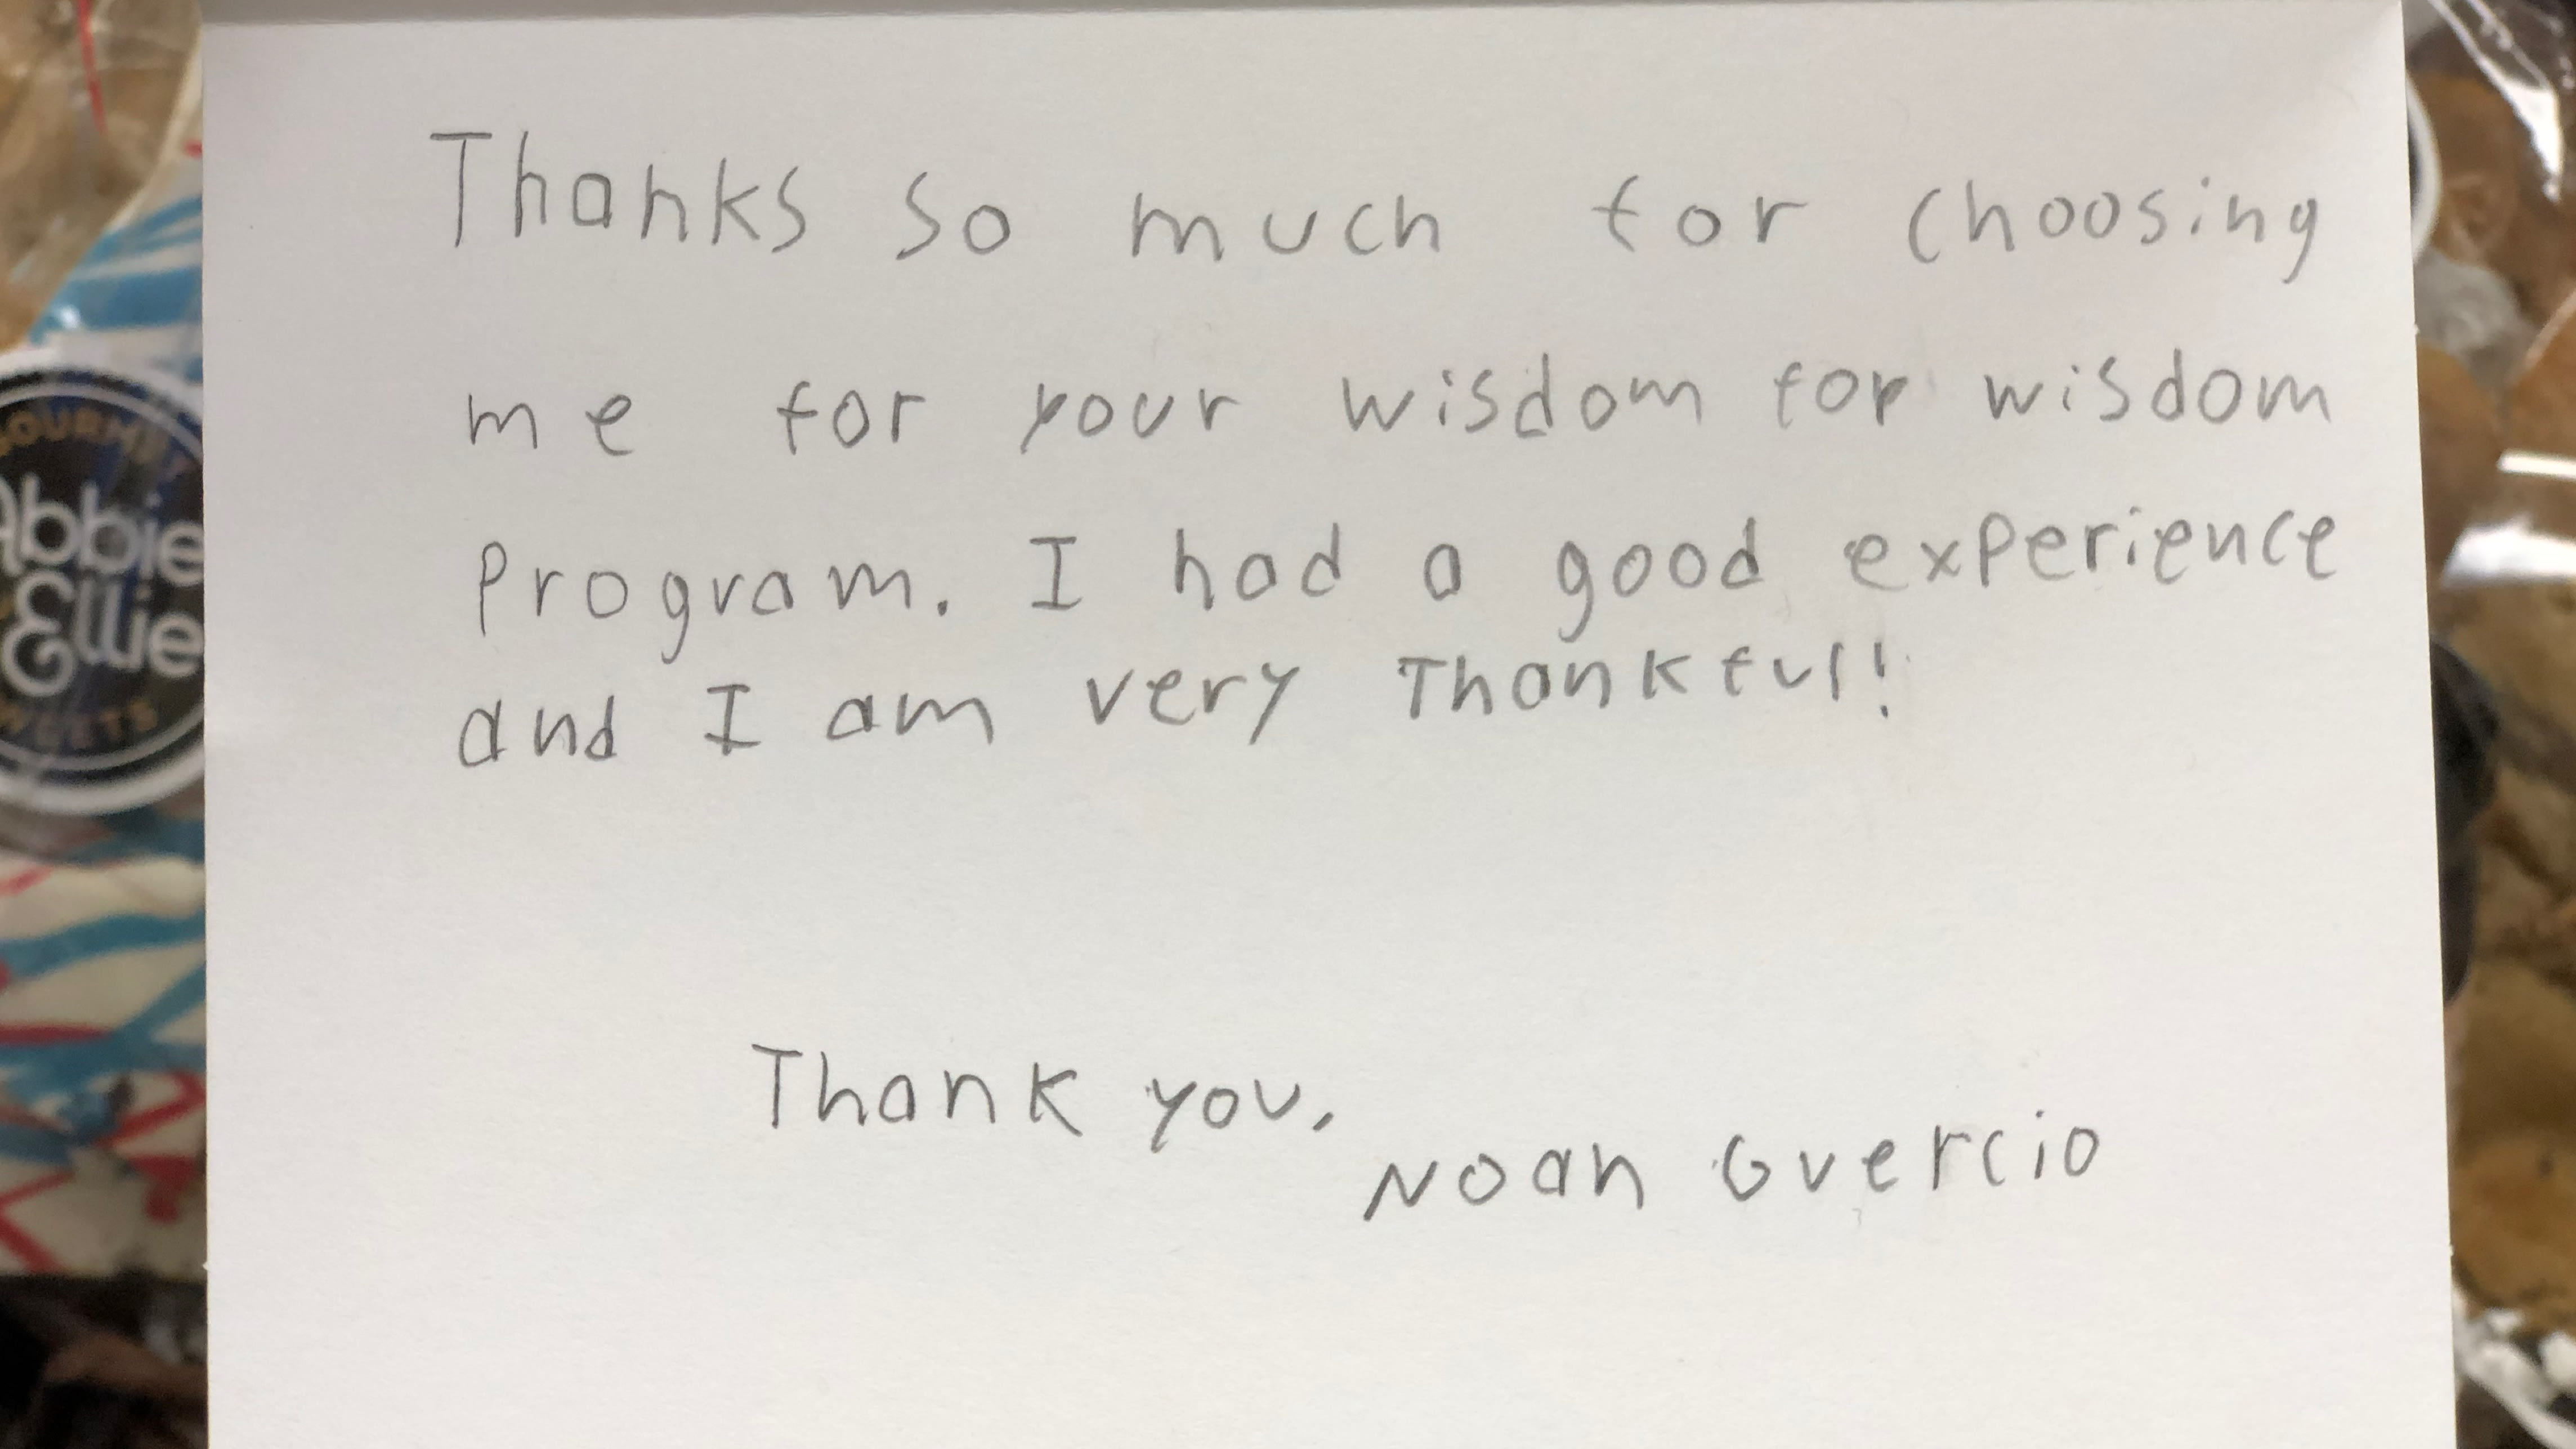 Thanks so much for choosing
me for your wisdom for wisdom
Program. I had a good experience
and I am very Thankful!
Thank you,
Noah Guercio
Abbie
Ellie